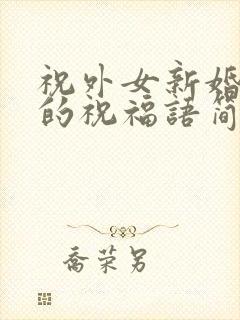 祝外女新婚
的祝福語简
喬荣另